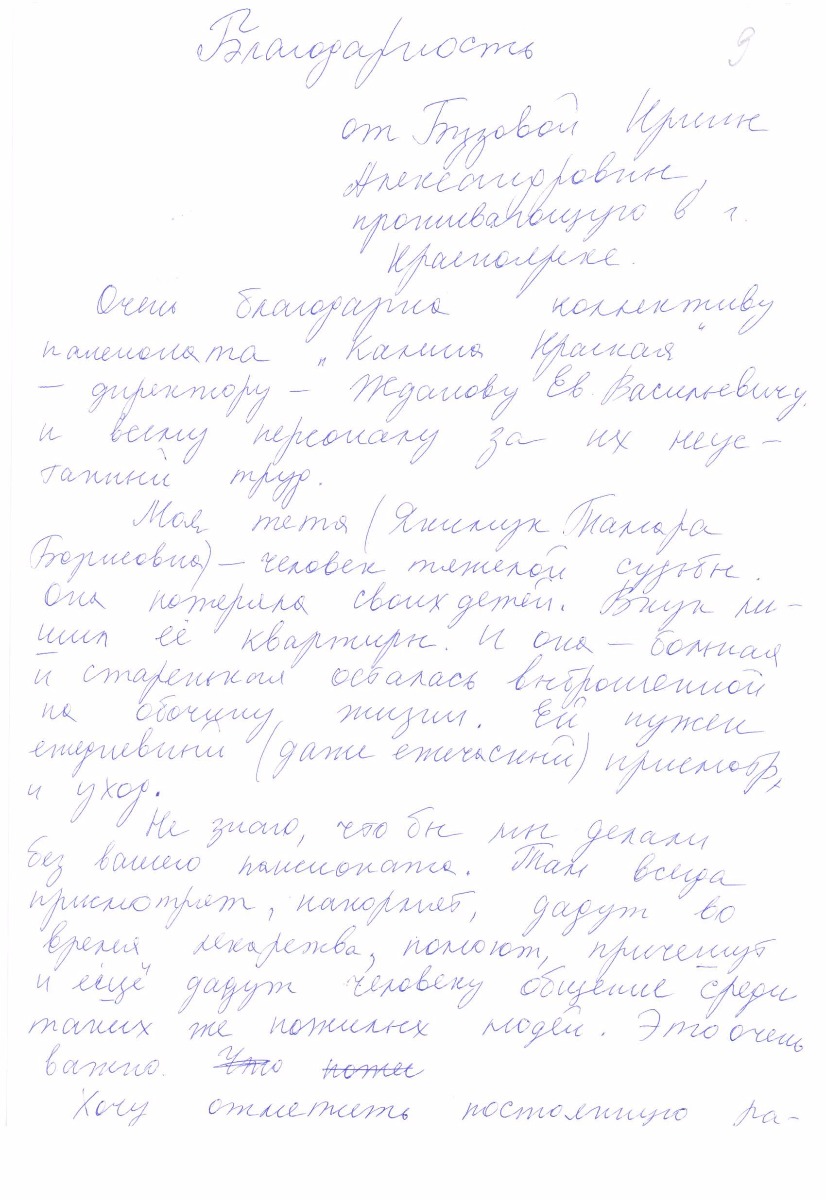 Благодарность 9
от Бузовой Ирины
Александровны,
проживающую в г.
Красноярске.
Очень благодарна коллективу
пансионата „Калина Красная"
– директору – Жданову Ев. Васильевичу,
и всему персоналу за их неус–
танный труд.
Моя тетя (Якимук Тамара
Борисовна) – человек тяжелой судьбы.
Она потеряла своих детей. Внук ли–
шил её квартиры. И она – больная
и старенькая осталась выброшенной
на обочину жизни. Ей нужен
ежедневный (даже ежечасный) присмотр,
и уход.
Не знаю, что бы мы делали
без вашего пансионата. Там всегда
присмотрят, накормят, дадут во
время лекарства, помоют, причешут
и ещё дадут человеку общение среди
таких же пожилых людей. Это очень
важно.
Хочу отметить постоянную ра–